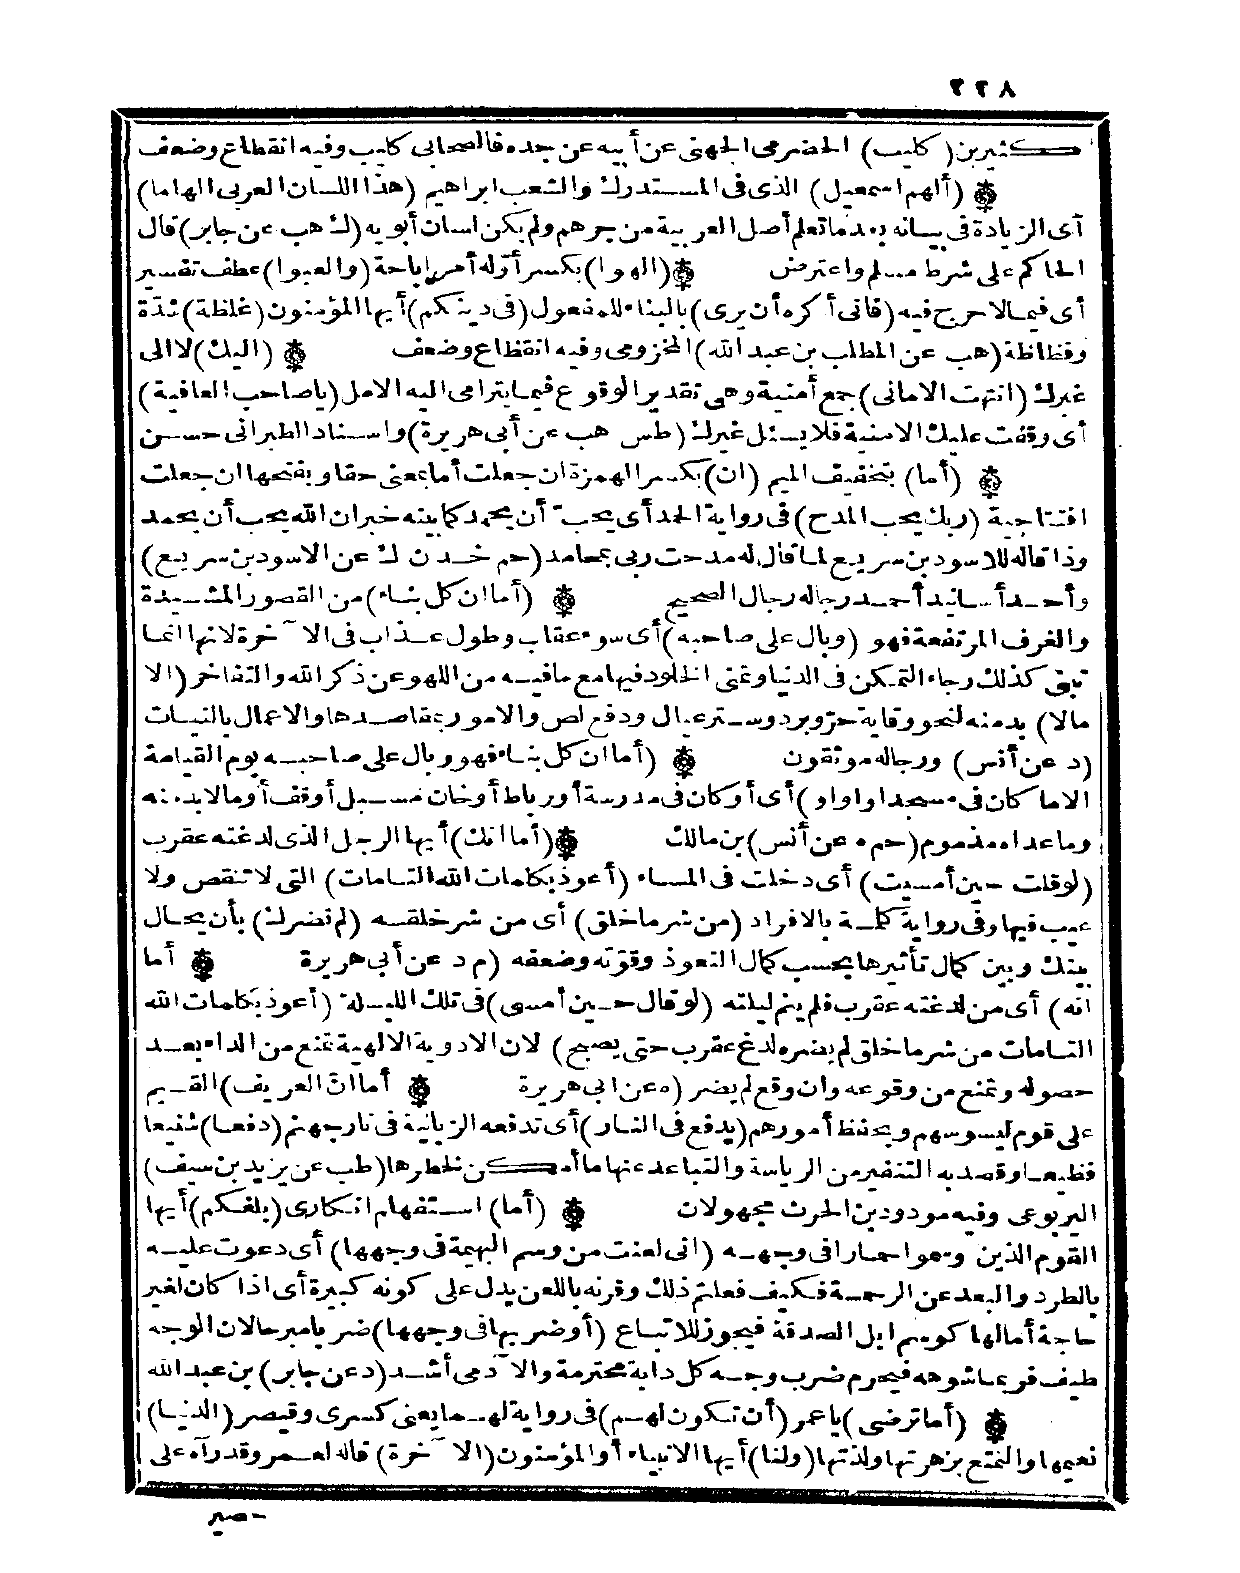 ٢٢٨
كثير بن (كليب) الحضرمى الجهنى عن أبيه عن جده فالصحابى كليب وفيه انقطاع وضعف
(ألهم اسمعيل) الذى فى المستدرك والشعب ابراهيم (هذا اللسان العربى الهاما)
أى الزيادة فى بيانه بعد ما تعلم أصل العربية من جرهم ولم يكن لسان أبويه (ك هب عن جابر) قال
الحاكم على شرط مسلم واعترض (الهوا) بكسر أوّله أمر اباحة (والعبوا) عطف تفسير
أى فيما لا حرج فيه (فانى أكره أن يرى) بالبناء للمفعول (فى دينكم) أيها المؤمنون (غلظة) شدّة
وفظاظة (هب عن المطلب بن عبد الله) المخزومى وفيه انقطاع وضعف (اليك) لا الى
غيرك (انتهت الامانى) جمع أمنية وهى تقدير الوقوع فيما يترامى اليه الامل (يا صاحب العافية)
أى وقفت عليك الامنية فلا يسئل غيرك (طس هب عن أبى هريرة) واسناد الطبرانى حسن
(أما) بتخفيف الميم (ان) بكسر الهمزة ان جعلت أما بمعنى حقا وبفتحها ان جعلت
افتتاحية (ربك يحب المدح) فى رواية الحد أى يحب أن يحمد كما يينه خبر ان الله يحب أن يحمد
وذا قاله للاسود بن سريع لما قال له مدحت ربى بمحامد (حم خد ن ك عن الاسود بن سريع)
وأحد أسانيد أحمد رجاله رجال الصحيح (أما ان كل بناء) من القصور المشيدة
والغرف المرتفعة فهو (وبال على صاحبه) أى سوء عقاب وطول عذاب فى الآخرة لانها انما
تبنى كذلك رجاء التمكن فى الدنيا وتمنى الخلود فيها مع ما فيه من اللهو عن ذكر الله والتفاخر (الا
مالا) بد منه لنحو وقاية حرّ وبرد وستر عيال ودفع لص والامور بمقاصدها والاعمال بالنيات
(د عن أنس) ورجاله موثقون (أما ان كل بناء فهو وبال على صاحبه يوم القيامة
الا ما كان فى مسجد او او او) أى أو كان فى مدرسة أو رباط أو خان مسبل أو وقف أو ما لا بد منه
وما عداه مذموم (حم ه عن أنس) بن مالك (أما انك) أيها الرجل الذى لدغته عقرب
(لو قلت حين أمسيت) أى دخلت فى المساء (أعوذ بكلمات الله التامات) التى لا تنقص ولا
عيب فيها وفى رواية كلمة بالافراد (من شر ما خلق) أى من شر خلقه (لم تضرك) بأن يحال
بينك وبين كمال تأثيرها بحسب كمال التعوذ وقوّته وضعفه (م د عن أبى هريرة أما
انه) أى من لدغته عقرب فلم ينم ليلته (لو قال حين أمسى) فى تلك الليلة (أعوذ بكلمات الله
التامات من شر ما خلق لم يضره لدغ عقرب حتى يصبح) لان الادوية الالهية تمنع من الداء بعد
حصوله وتمنع من وقوعه وان وقع لم يضر (ه عن ابى هريرة أما انّ العريف) القيم
على قوم ليسوسهم ويحفظ أمورهم (يدفع فى النار) أى تدفعه الزبانية فى نار جهنم (دفعا) شنيعا
فظيعا وقصد به التنفير من الرياسة والتباعد عنها ما أمكن لخطرها (طب عن يزيد بن سيف)
اليربوعى وفيه مودود بن الحرث مجهولات (أما) استفهام انكارى (بلغكم) أيها
القوم الذين وسموا حمارا فى وجهه (انى لعنت من وسم البهيمة فى وجهها) أى دعوت عليه
بالطرد والبعد عن الرحمة فكيف فعلتم ذلك وقرنه باللعن يدل على كونه كبيرة أى اذا كان لغير
حاجة أما لها كوسم ابل الصدقة فيجوز للاتباع (أو ضربها فى وجهها) ضربا مبرحا لان الوجه
طيف فربما شوهه فيحرم ضرب وجه كل دابة محترمة والآدمى أشد (د عن جابر) بن عبد الله
(أما ترضى) يا عمر (أن تكون لهم) فى رواية لهما يعنى كسرى وقيصر (الدنيا)
نعيمها والتمتع بزهرتها ولذتها (ولنا) أيها الانبياء أو المؤمنون (الآخرة) قاله لعمر وقد رآه على
حصير